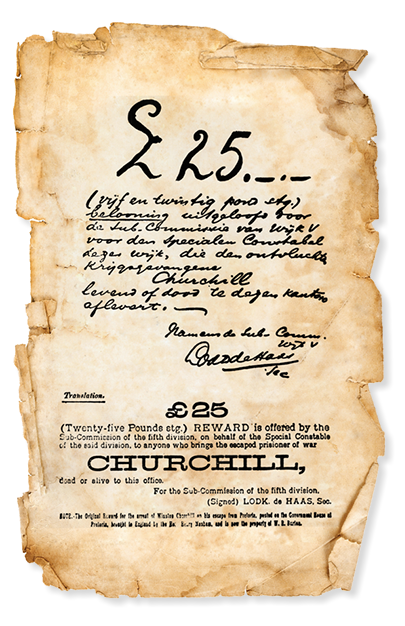 £ 25.-.-
(vijf en twintig pond stg.)
belooning uitgeloofd door
de Sub-Commissie van Wijk V
voor den specialen Constabel
dezer wijk, die den ontvluchte
Krijgsgevangene
Churchill
levend of dood te dezen kantore
aflevert.—
Namens de Sub-Comm.
Wijk V
Lodk de Haas
Sec
Translation.
£25
(Twenty-five Pounds stg.) REWARD is offered by the
Sub-Commission of the fifth division, on behalf of the Special Constable
of the said division, to anyone who brings the escaped prisioner of war
CHURCHILL,
dead or alive to this office.
For the Sub-Commission of the fifth division,
(Signed) LODK. de HAAS, Sec.
NOTE.-The Original Reward for the arrest of Winston Churchill on his escape from Pretoria, posted on the Government House at
Pretoria, brought to England by the Hon. Henry Masham, and is now the property of W. R. Burton.